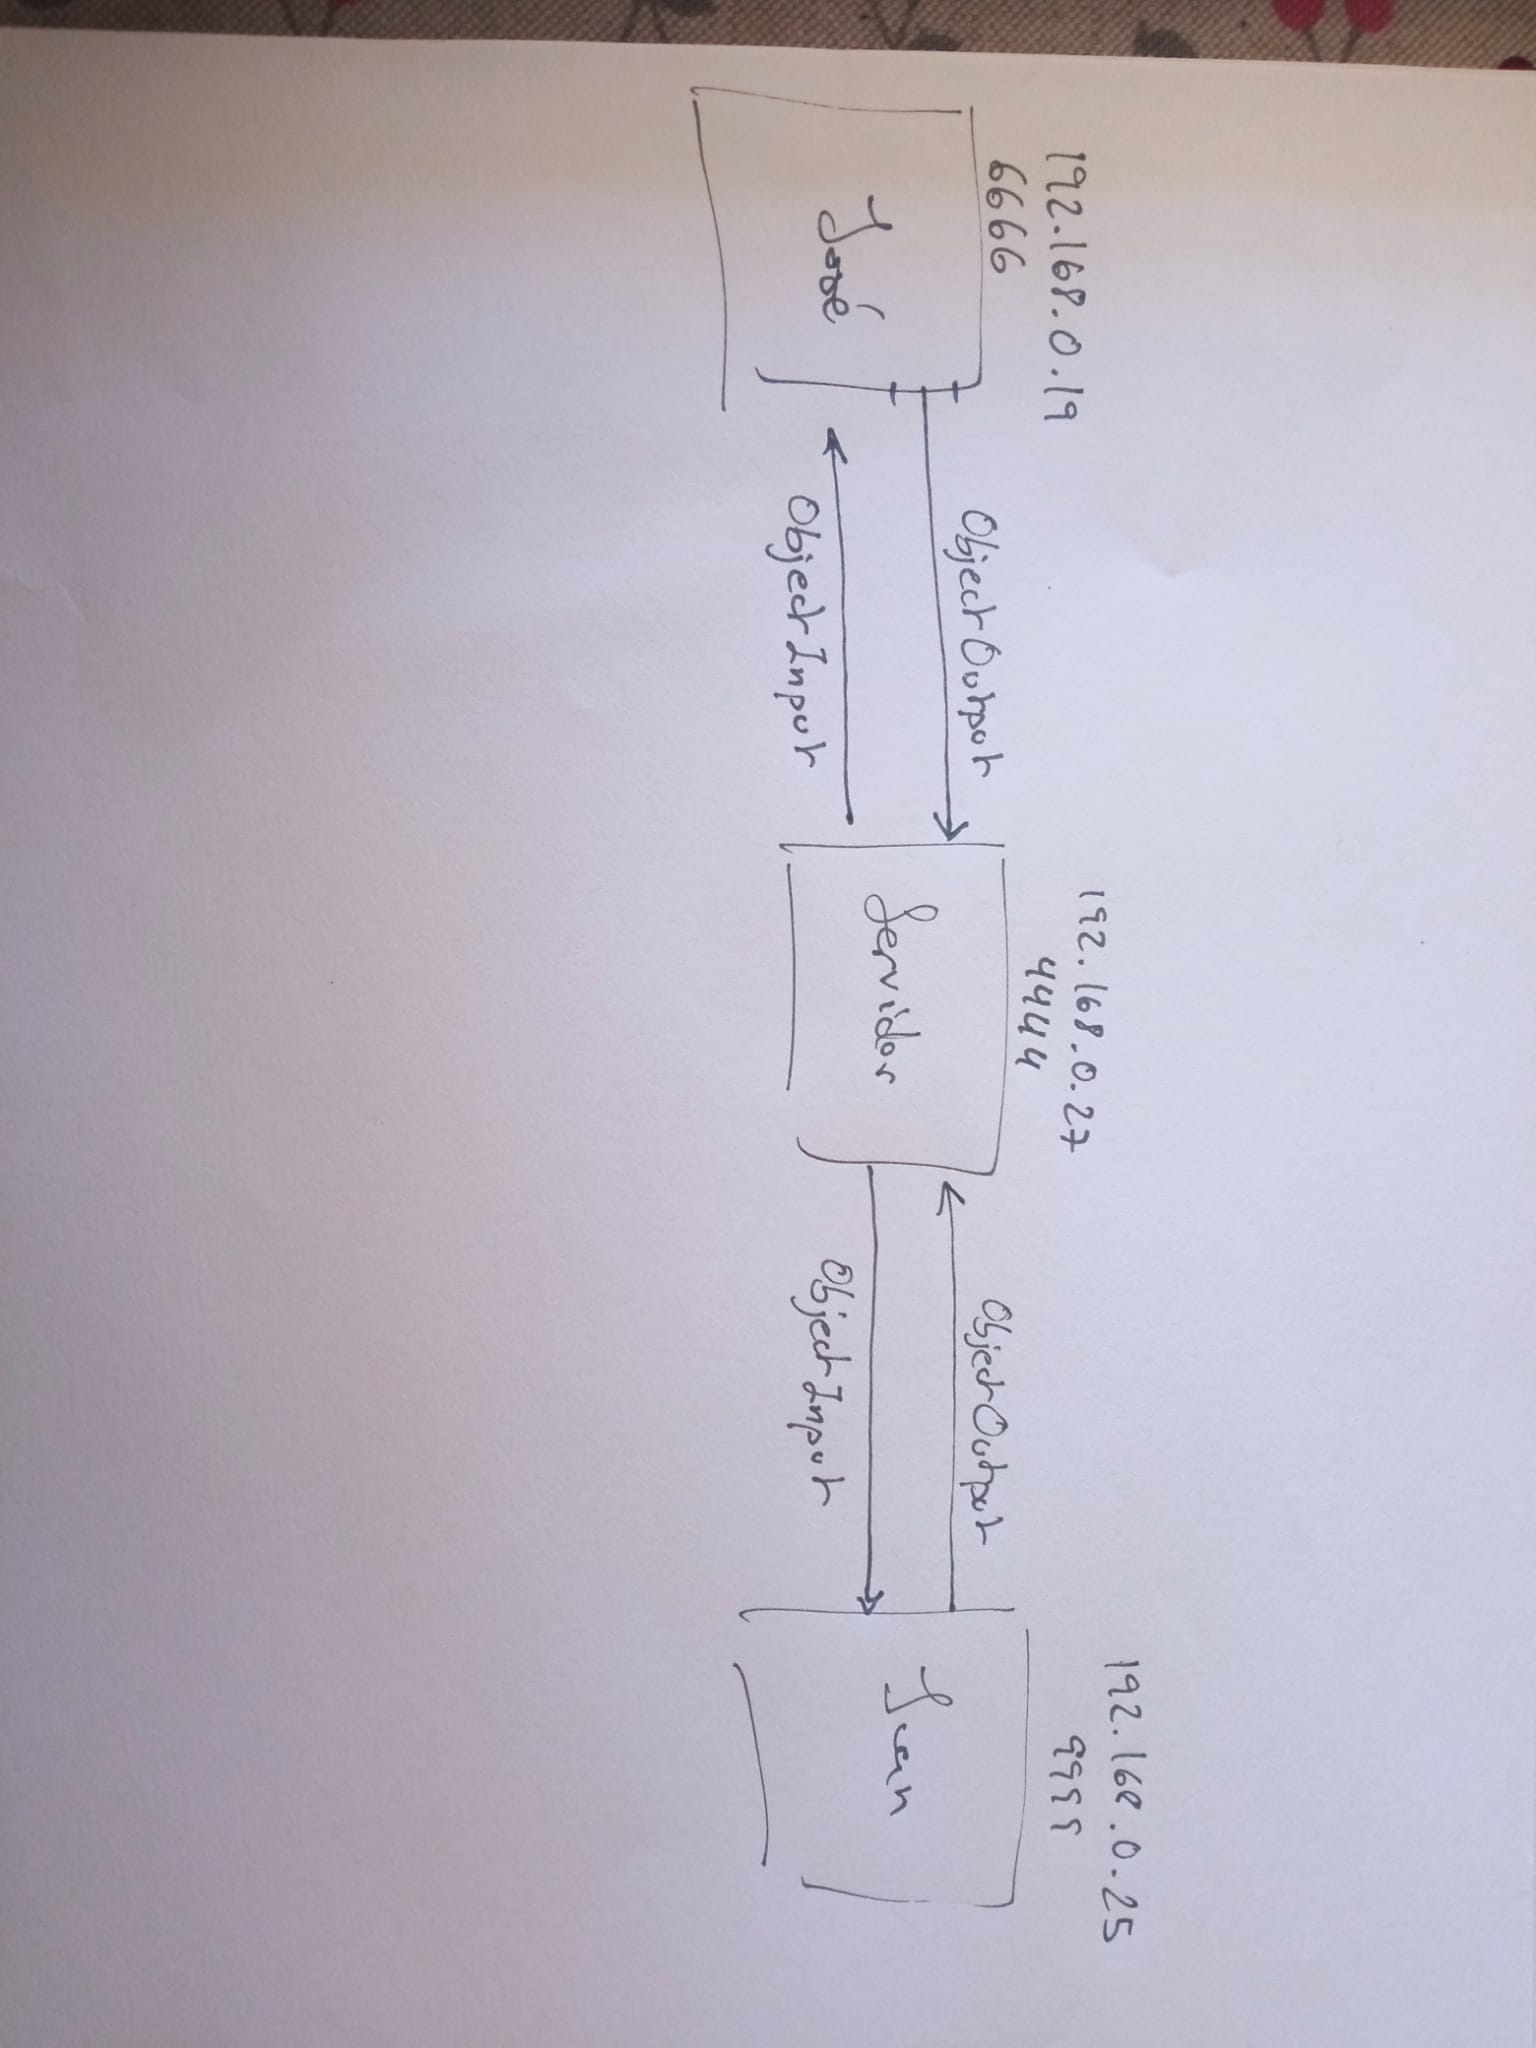 192.168.0.19
6666
José
ObjectOutput
ObjectInput
192.168.0.27
4444
Servidor
ObjectOutput
ObjectInput
192.168.0.25
9999
Juan